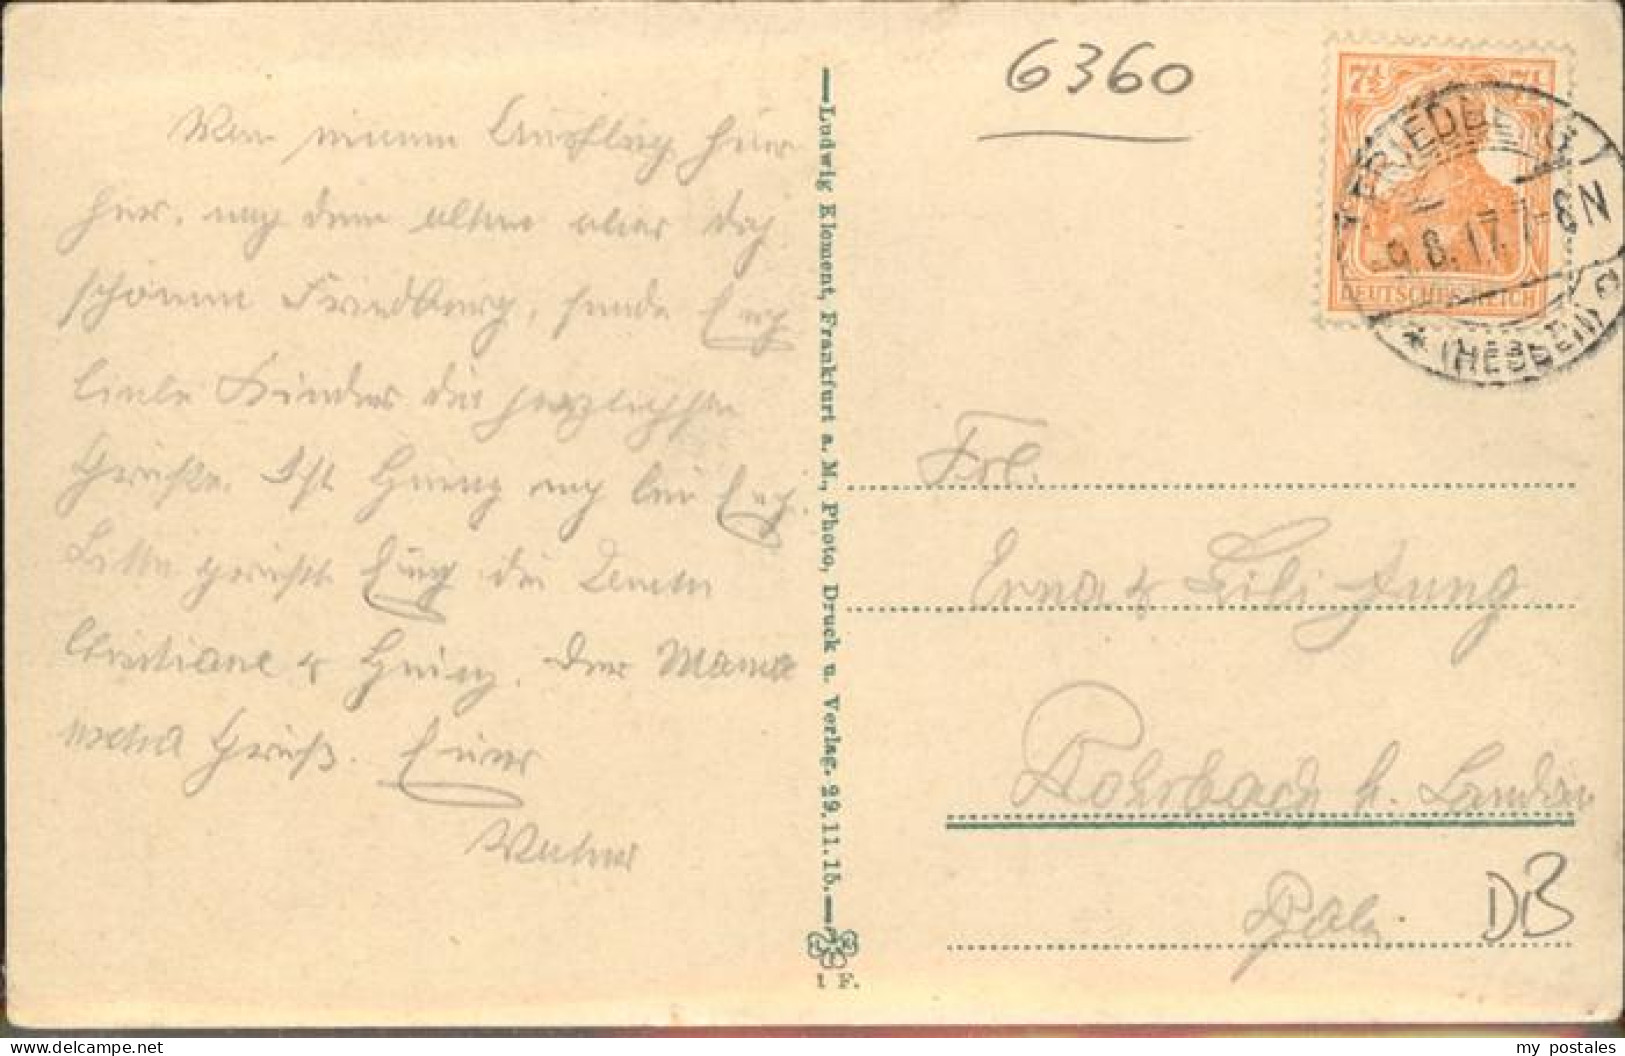 Von einem Ausflug hier
hier, nach dem alten aber doch
schönen Friedberg, sende Euch
liebe Kinder die herzlichsten
Grüße. Ist Heinz noch bei Euch.
Bitte grüßt Euch die Damen
Christiane & Heinz. Der Mama
extra Gruß. Euer
Vater
Ludwig Klement, Frankfurt a. M., Photo, Druck u. Verlag. 29.11.15.
1 F.
6360
7½ 7½
DEUTSCHES REICH
FRIEDBERG
9.8.17. 7-8N
* (HESSEN)
Frl.
Erna & Lili Jung
Rohrbach b. Landau
Pfalz.
DB
my-postales.com
my postales